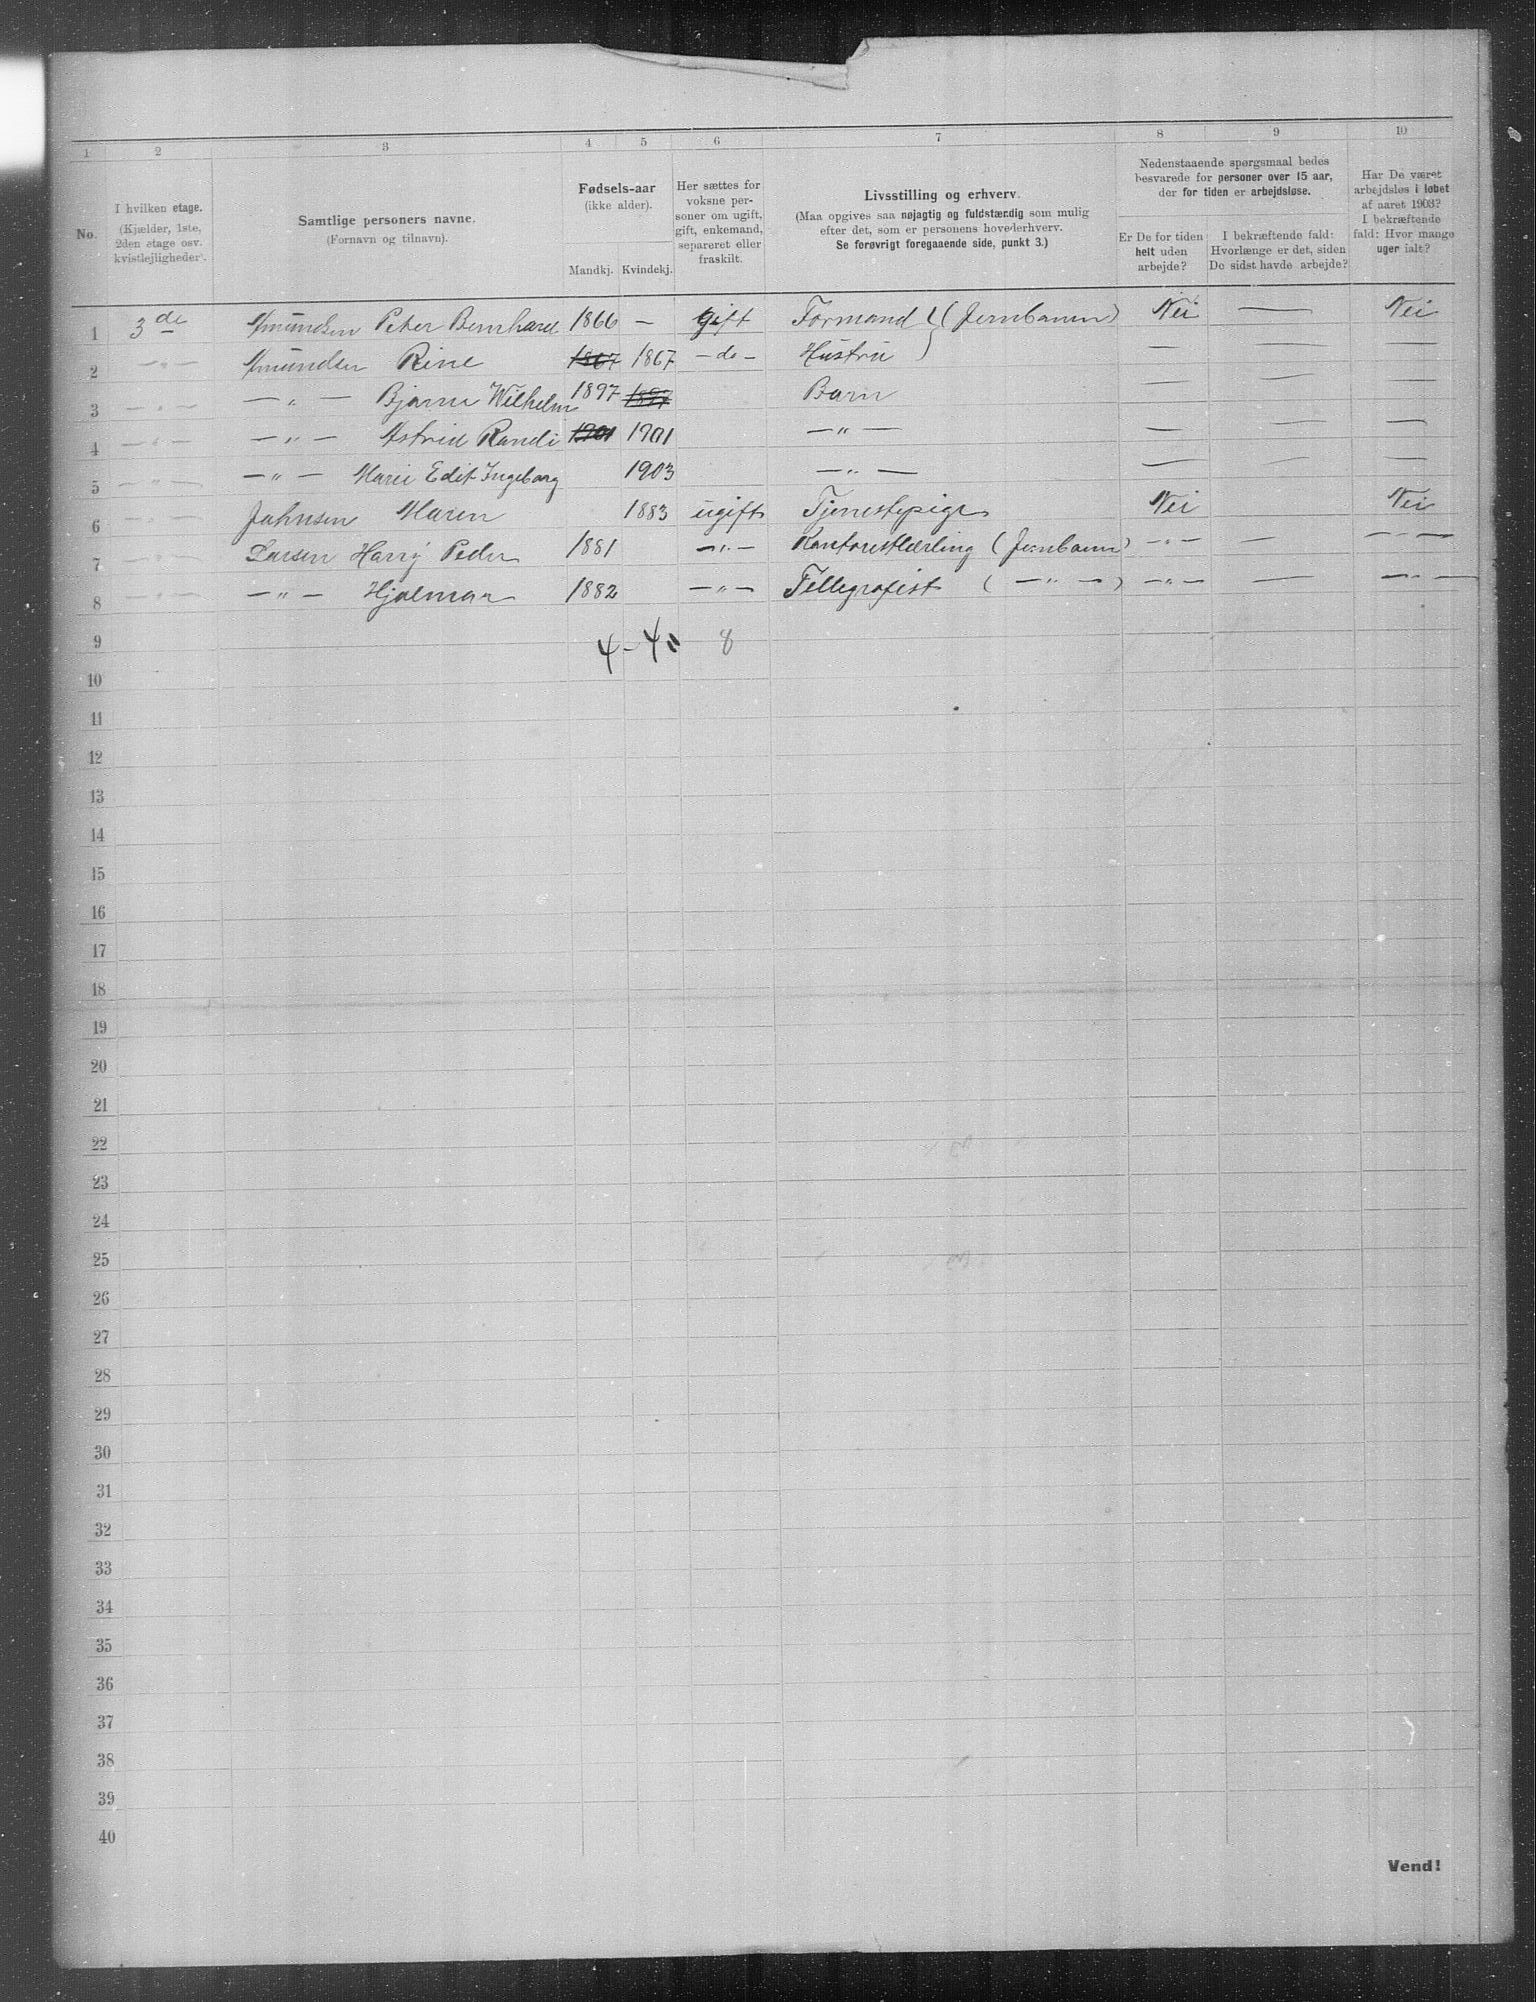 1 2 3 4 5 6 7 8 9 10
No.
I hvilken etage.
(Kjælder, 1ste,
2den etage osv.
kvistlejligheder).
Samtlige personers navne.
(Fornavn og tilnavn).
Fødsels-aar
(ikke alder).
Mandkj. Kvindekj.
Her sættes for
voksne per-
soner om ugift,
gift, enkemand,
separeret eller
fraskilt.
Livsstilling og erhverv.
(Maa opgives saa nøjagtig og fuldstændig som mulig
efter det, som er personens hovederhverv.
Se forøvrigt foregaaende side, punkt 3.)
Nedenstaaende spørgsmaal bedes
besvarede for personer over 15 aar,
der for tiden er arbejdsløse.
Er De for tiden
helt uden
arbejde?
I bekræftende fald:
Hvorlænge er det, siden
De sidst havde arbejde?
Har De været
arbejdsløs i løbet
af aaret 1903?
I bekræftende
fald: Hvor mange
uger ialt?
1 3de Amundsen Peter Bernhard 1866 — gift Formand } (Jernbanen) Nei — Nei
2 —"— Amundsen Rine 1867 1867 —do— Hustru } — — —
3 —"— —"— Bjarne Wilhelm 1897 1897 Barn — — —
4 —"— —"— Astrid Randi 1901 1901 —"— — — —
5 —"— —"— Marie Edit Ingeborg 1903 —"— — — —
6 —"— Johnsen Maren 1883 ugift Tjenestepige Nei — Nei
7 —"— Larsen Harry Peder 1881 —"— Kontorestlærling (Jernbanen) —"— — —"—
8 —"— —"— Hjalmar 1882 —"— Tellegrafist (—"—) —"— — —"—
9 4 – 4 8
10
11
12
13
14
15
16
17
18
19
20
21
22
23
24
25
26
27
28
29
30
31
32
33
34
35
36
37
38
39
40
Vend!